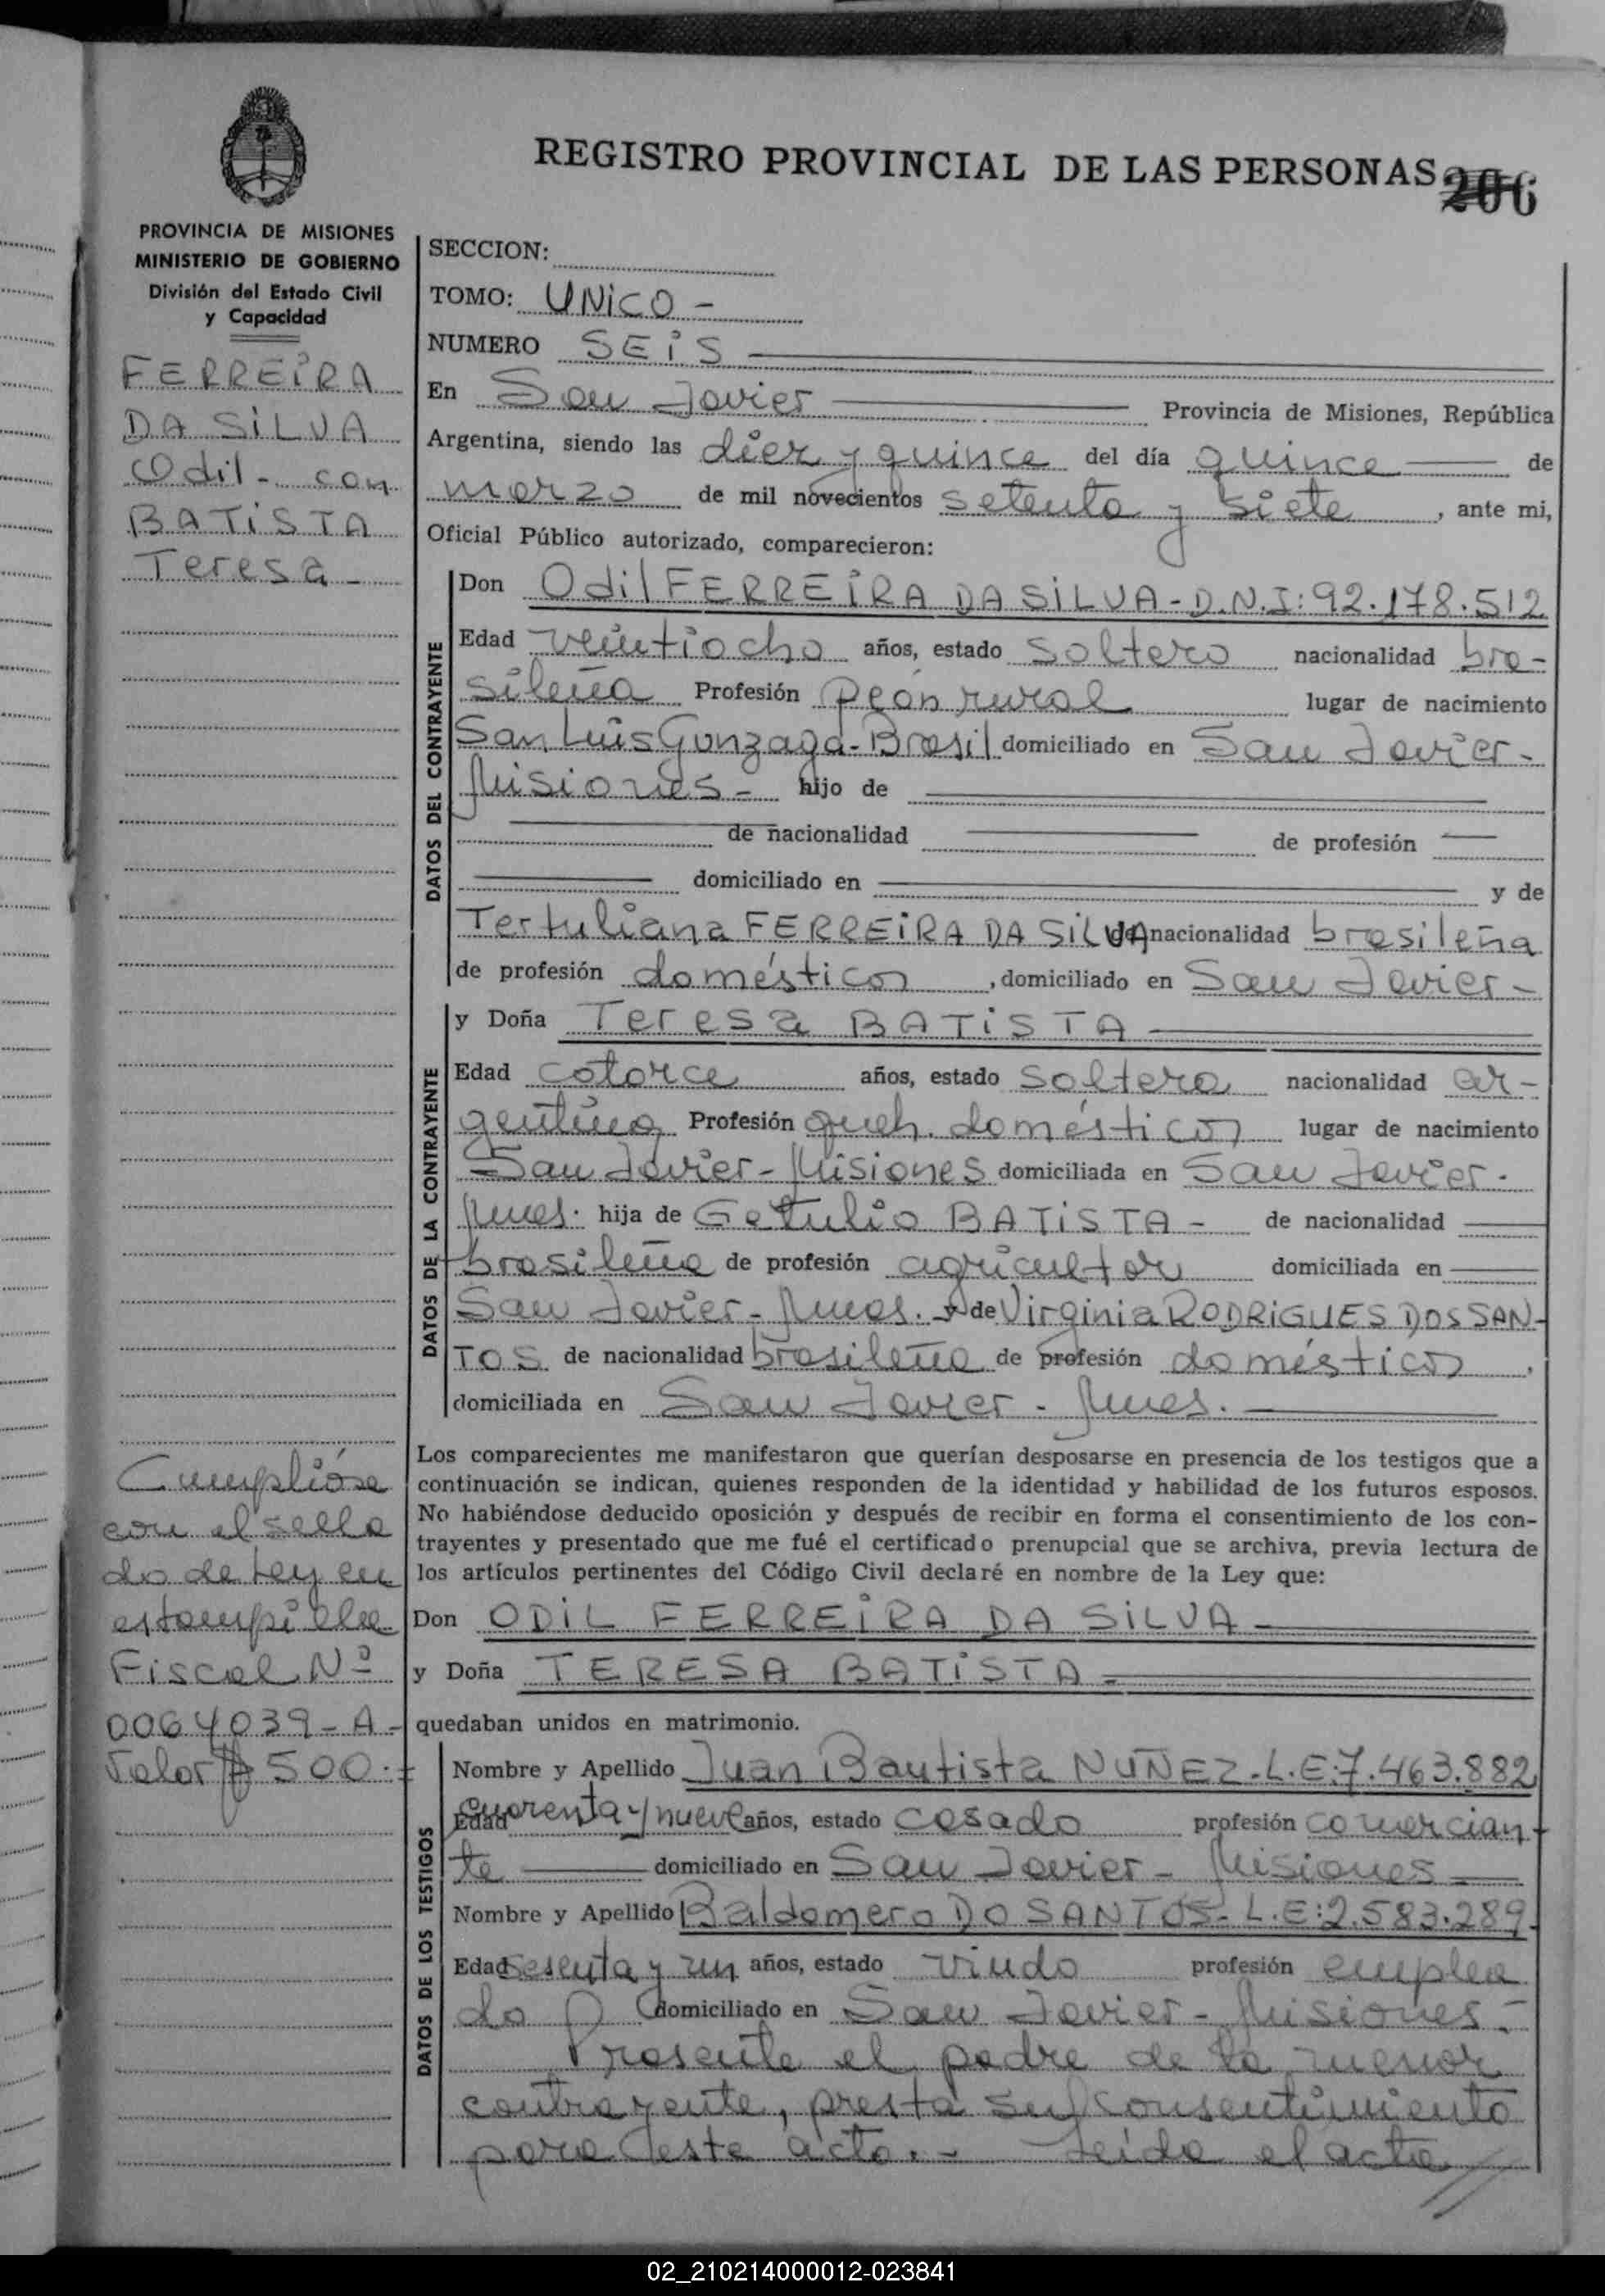 REGISTRO PROVINCIAL DE LAS PERSONAS 206
PROVINCIA DE MISIONES
MINISTERIO DE GOBIERNO
División del Estado Civil
y Capacidad
FERREIRA
DA SILVA
Odil - con
BATISTA
Teresa -
SECCION:
TOMO: UNICO -
NUMERO SEIS
En San Javier Provincia de Misiones, República
Argentina, siendo las diez y quince del día quince de
marzo de mil novecientos setenta y siete, ante mi,
Oficial Público autorizado, comparecieron:
DATOS DEL CONTRAYENTE
Don Odil FERREIRA DA SILVA - D.N.I: 92.178.512
Edad veintiocho años, estado soltero nacionalidad bra-
sileña Profesión peón rural lugar de nacimiento
San Luis Gonzaga - Brasil domiciliado en San Javier -
Misiones - hijo de
de nacionalidad de profesión
domiciliado en y de
Tertuliana FERREIRA DA SILVA de nacionalidad brasileña
de profesión doméstica, domiciliado en San Javier -
DATOS DE LA CONTRAYENTE
y Doña Teresa BATISTA
Edad catorce años, estado soltera nacionalidad ar-
gentina Profesión queh. domésticos lugar de nacimiento
San Javier - Misiones domiciliada en San Javier -
Mnes. hija de Getulio BATISTA - de nacionalidad
brasileña de profesión agricultor domiciliada en
San Javier - Mnes. y de Virginia RODRIGUES DOS SAN-
TOS de nacionalidad brasileña de profesión doméstica,
domiciliada en San Javier - Mnes.
Los comparecientes me manifestaron que querían desposarse en presencia de los testigos que a
continuación se indican, quienes responden de la identidad y habilidad de los futuros esposos.
No habiéndose deducido oposición y después de recibir en forma el consentimiento de los con-
trayentes y presentado que me fué el certificado prenupcial que se archiva, previa lectura de
los artículos pertinentes del Código Civil declaré en nombre de la Ley que:
Don ODIL FERREIRA DA SILVA
y Doña TERESA BATISTA
quedaban unidos en matrimonio.
Cumplióse
con el sella
do de Ley en
estampilla
Fiscal Nº
0064039 - A -
Valor $ 500.-
DATOS DE LOS TESTIGOS
Nombre y Apellido Juan Bautista NUÑEZ - L.E: 7.463.882
Edad cuarenta y nueve años, estado casado profesión comercian-
te domiciliado en San Javier - Misiones
Nombre y Apellido Baldomero DO SANTOS - L.E: 2.583.289
Edad sesenta y un años, estado viudo profesión emplea
do domiciliado en San Javier - Misiones -
Presente el padre de la menor
contrayente, presta su consentimiento
para este acto. - Leída el acta //
02_210214000012-023841